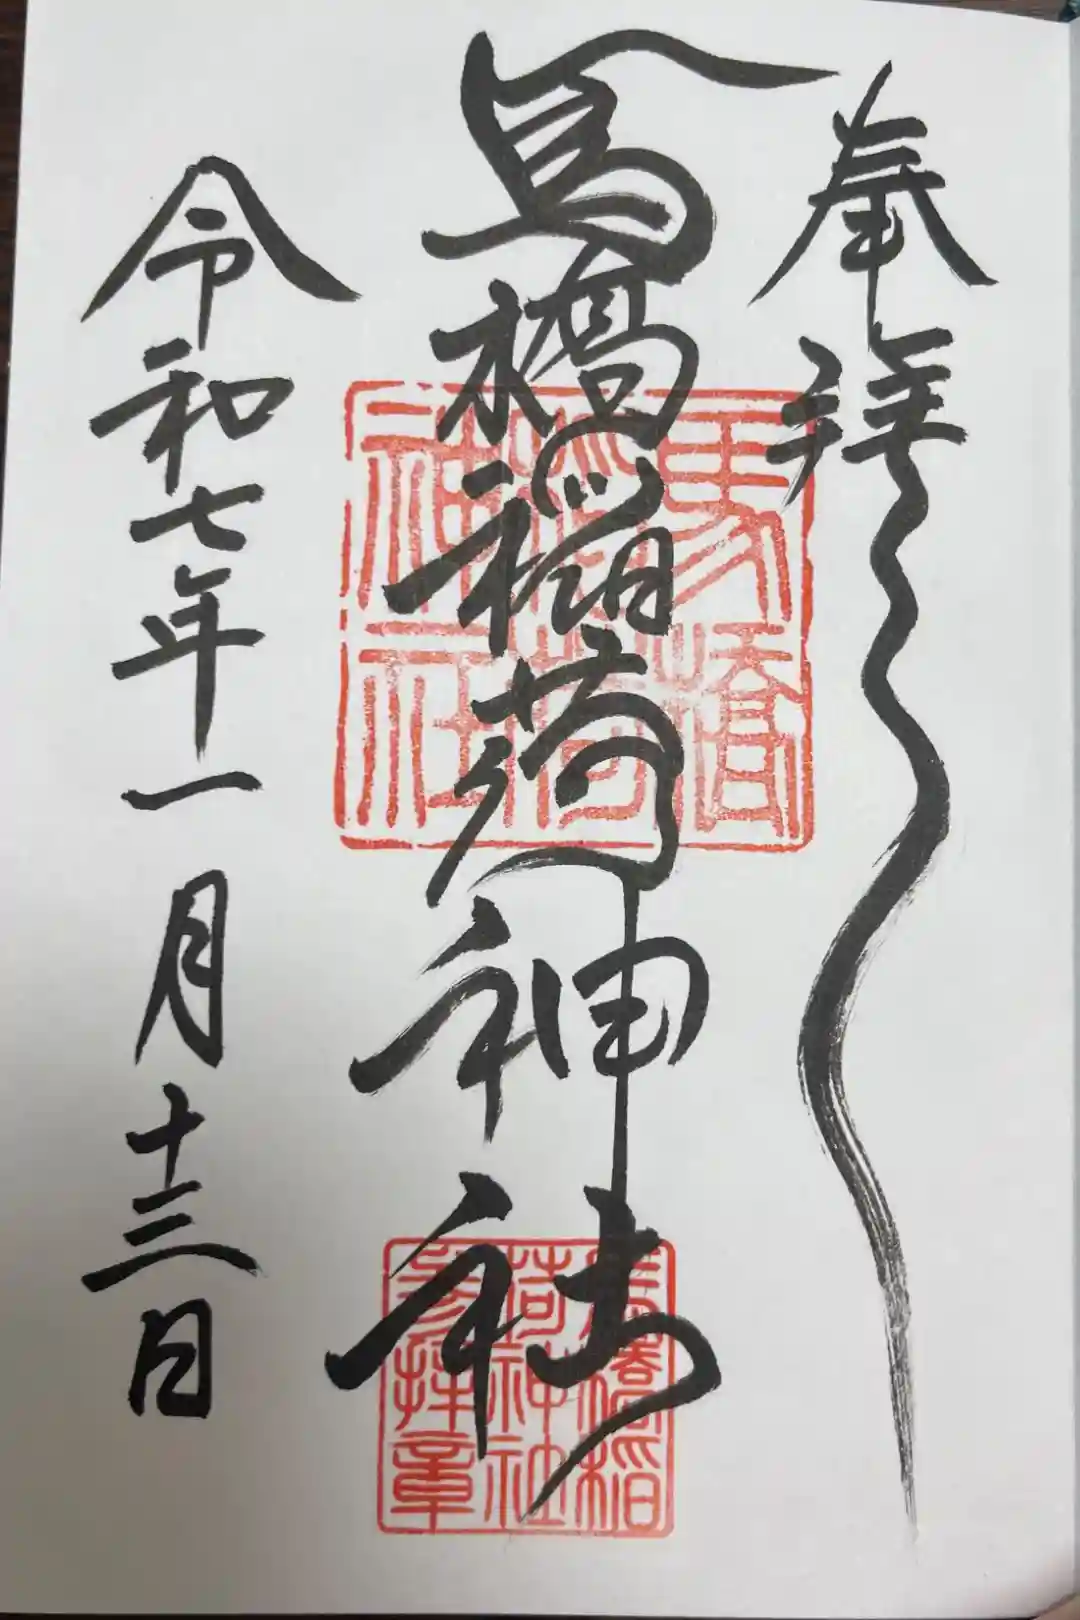 奉拝
馬橋稲荷神社
令和七年一月十三日
馬橋
稲荷
神社
馬橋稲
荷神社
参拝章